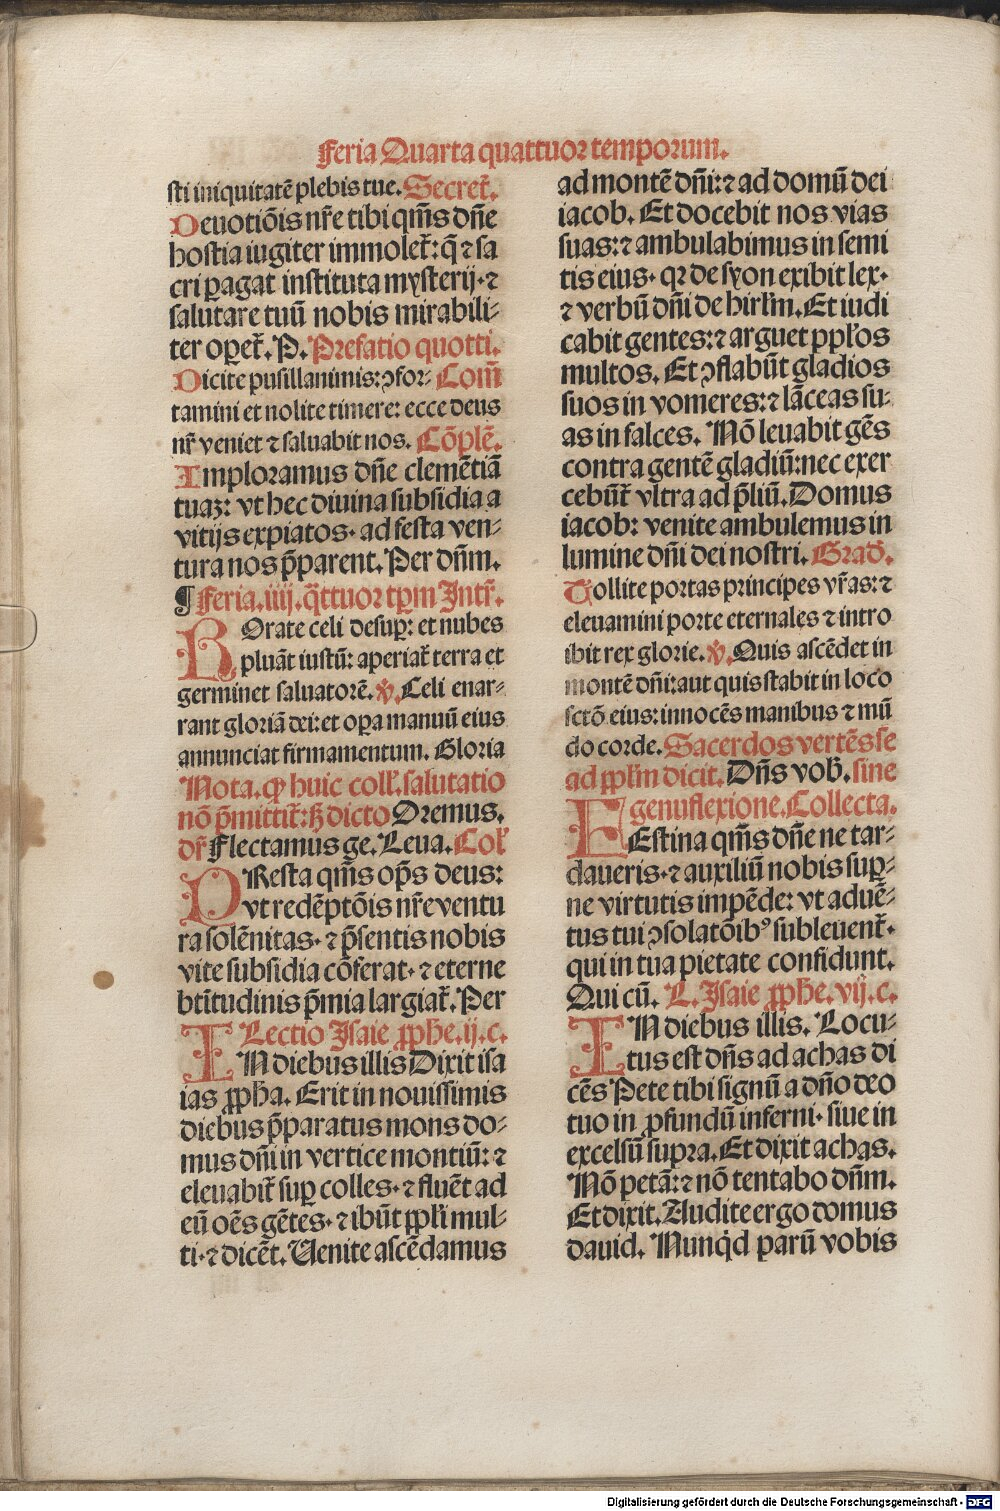 Feria Quarta quattuor temporum.
sti iniquitatē plebis tue. Secret̄.
Deuotiōis nr̄e tibi qm̄s dn̄e
hostia iugiter immolet̄: q̄ ⁊ sa
cri ꝑagat instituta mysterij· ⁊
salutare tuū nobis mirabili-
ter oꝑet̄. P. Prefatio quotti.
Dicite pusillanimis: ꝯfor- Com̄
tamini et nolite timere: ecce deus
nr̄ veniet ⁊ saluabit nos. Cōplē.
Imploramus dn̄e clemētiā
tuaꝫ: vt hec diuina subsidia a
vitijs expiatos· ad festa ven-
tura nos p̄parent. Per dn̄m.
¶ Feria. iiij. q̄ttuor tꝑm Intr̄.
ROrate celi desuꝑ: et nubes
pluāt iustū: aperiat̄ terra et
germinet saluatorē. ℣. Celi enar-
rant gloriā dei: et oꝑa manuū eius
annunciat firmamentum. Gloria
Nota. ꝙ huic coll'. salutatio
nō p̄mittit̄: sꝫ dicto Oremus.
dr̄ Flectamus ge. Leua. Col'
PResta qm̄s oꝑs deus:
vt redēptōis nr̄e ventu
ra solēnitas· ⁊ p̄sentis nobis
vite subsidia cōferat· ⁊ eterne
btītudinis p̄mia largiat̄. Per
Lectio Isaie ꝓphe. ij. c.
IN diebus illis Dixit isa
ias ꝓpha. Erit in nouissimis
diebus p̄paratus mons do-
mus dn̄i in vertice montiū: ⁊
eleuabit̄ suꝑ colles· ⁊ fluēt ad
eū oēs gētes· ⁊ ibūt ꝓpl'i mul-
ti· ⁊ dicēt. Uenite ascēdamus
ad montē dn̄i: ⁊ ad domū dei
iacob. Et docebit nos vias
suas: ⁊ ambulabimus in semi
tis eius· qꝛ de syon exibit lex·
⁊ verbū dn̄i de hirl'm. Et iudi
cabit gentes: ⁊ arguet ppl'os
multos. Et ꝯflabūt gladios
suos in vomeres: ⁊ lāceas su-
as in falces. Nō leuabit gēs
contra gentē gladiū: nec exer
cebūt̄ vltra ad p̄liū. Domus
iacob: venite ambulemus in
lumine dn̄i dei nostri. Grad̄.
Tollite portas principes vr̄as: ⁊
eleuamini porte eternales ⁊ intro
ibit rex glorie. ℣. Quis ascēdet in
montē dn̄i: aut quis stabit in loco
sctō eius: innocēs manibus ⁊ mū
do corde. Sacerdos vertēs se
ad ꝓpl'm dicit. Dn̄s vob̄. sine
genuflexione. Collecta.
FEstina qm̄s dn̄e ne tar-
daueris· ⁊ auxiliū nobis suꝑ-
ne virtutis impēde: vt aduē-
tus tui ꝯsolatōibꝰ subleuent̄·
qui in tua pietate confidunt.
Qui cū. L. Isaie ꝓphe. vij. c.
IN diebus illis. Locu-
tus est dn̄s ad achas di
cēs Pete tibi signū a dn̄o deo
tuo in ꝓfundū inferni· siue in
excelsū supra. Et dixit achas.
Nō petā: ⁊ nō tentabo dn̄m.
Et dixit. Audite ergo domus
dauid. Nunq̇d parū vobis
Digitalisierung gefördert durch die Deutsche Forschungsgemeinschaft - DFG